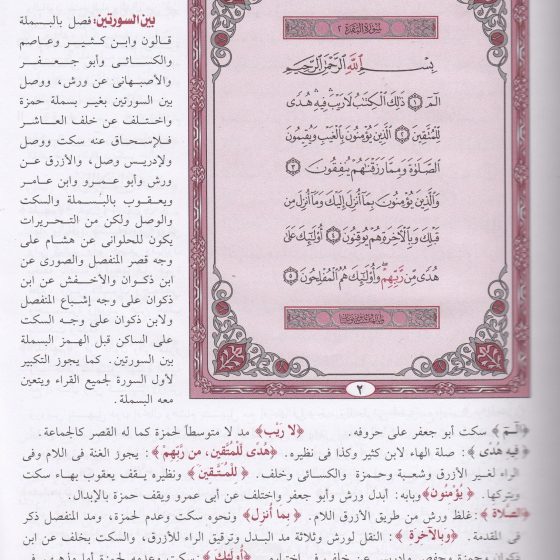 بين السورتين: فصل بالبسملة
قالون وابن كثير وعاصم
والكسائي وأبو جعفر
والأصبهاني عن ورش، ووصل
بين السورتين بغير بسملة حمزة
واختلف عن خلف العاشر
فلإسحاق عنه سكت ووصل
ولإدريس وصل، والأزرق عن
ورش وأبو عمرو وابن عامر
ويعقوب بالبسملة والسكت
والوصل ولكن من التحريرات
يكون للحلوانى عن هشام على
وجه قصر المنفصل والصورى عن
ابن ذكوان والأخفش عن ابن
ذكوان على وجه إشباع المنفصل
ولابن ذكوان على وجه السكت
على الساكن قبل الهمز البسملة
بين السورتين. كما يجوز التكبير
لأول السورة لجميع القراء ويتعين
معه البسملة.
سُورَةُ البَقَرَةِ ٢
بِسْمِ اللَّهِ الرَّحْمَٰنِ الرَّحِيمِ
الٓمٓ ١ ذَٰلِكَ الْكِتَٰبُ لَا رَيْبَ فِيهِ هُدًى
لِّلْمُتَّقِينَ ٢ الَّذِينَ يُؤْمِنُونَ بِالْغَيْبِ وَيُقِيمُونَ
الصَّلَوٰةَ وَمِمَّا رَزَقْنَٰهُمْ يُنفِقُونَ ٣
وَالَّذِينَ يُؤْمِنُونَ بِمَآ أُنزِلَ إِلَيْكَ وَمَآ أُنزِلَ مِن
قَبْلِكَ وَبِالْآخِرَةِ هُمْ يُوقِنُونَ ٤ أُو۟لَٰٓئِكَ عَلَىٰ
هُدًى مِّن رَّبِّهِمْ وَأُو۟لَٰٓئِكَ هُمُ الْمُفْلِحُونَ ٥
٢
﴿الٓمٓ﴾ سكت أبو جعفر على حروفه. ﴿لا رَيْبَ﴾ مد لا متوسطاً لحمزة كما له القصر كالجماعة.
﴿فِيهِ هُدًى﴾ : صلة الهاء لابن كثير وكذا فى نظيره. ﴿هُدًى لِّلْمُتَّقِينَ، مِن رَّبِّهِمْ﴾ : يجوز الغنة فى اللام وفى
الراء لغير الأزرق وشعبة وحمزة والكسائى وخلف. ﴿لِّلْمُتَّقِينَ﴾ ونظيره يقف يعقوب بهاء سكت
وبتركها. ﴿يُؤْمِنُونَ﴾ وبابه: أبدل ورش وأبو جعفر واختلف عن أبى عمرو ويقف حمزة بالإبدال.
﴿الصَّلَاةَ﴾ : غلظ ورش من طريق الأزرق اللام. ﴿بِمَا أُنزِلَ﴾ ونحوه سكت وعدم لحمزة، ومد المنفصل ذكر
فى المقدمة. ﴿وَبِالْآخِرَةِ﴾ : النقل لورش وثلاثة مد البدل وترقيق الراء للأزرق، والسكت بخلف عن ابن